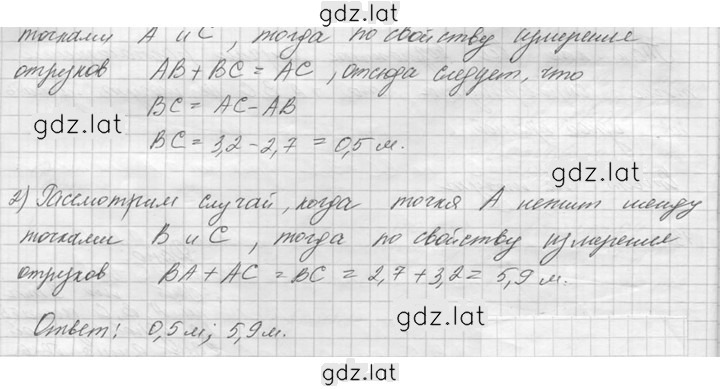 gdz.lat
точками A и C, тогда по свойству измерения
отрезков AB + BC = AC, отсюда следует, что
BC = AC - AB
gdz.lat
BC = 3,2 - 2,7 = 0,5 м.
gdz.lat
2) Рассмотрим случай, когда точка A лежит между
точками B и C, тогда по свойству измерения
отрезков BA + AC = BC = 2,7 + 3,2 = 5,9 м.
gdz.lat
Ответ: 0,5 м; 5,9 м.
gdz.lat